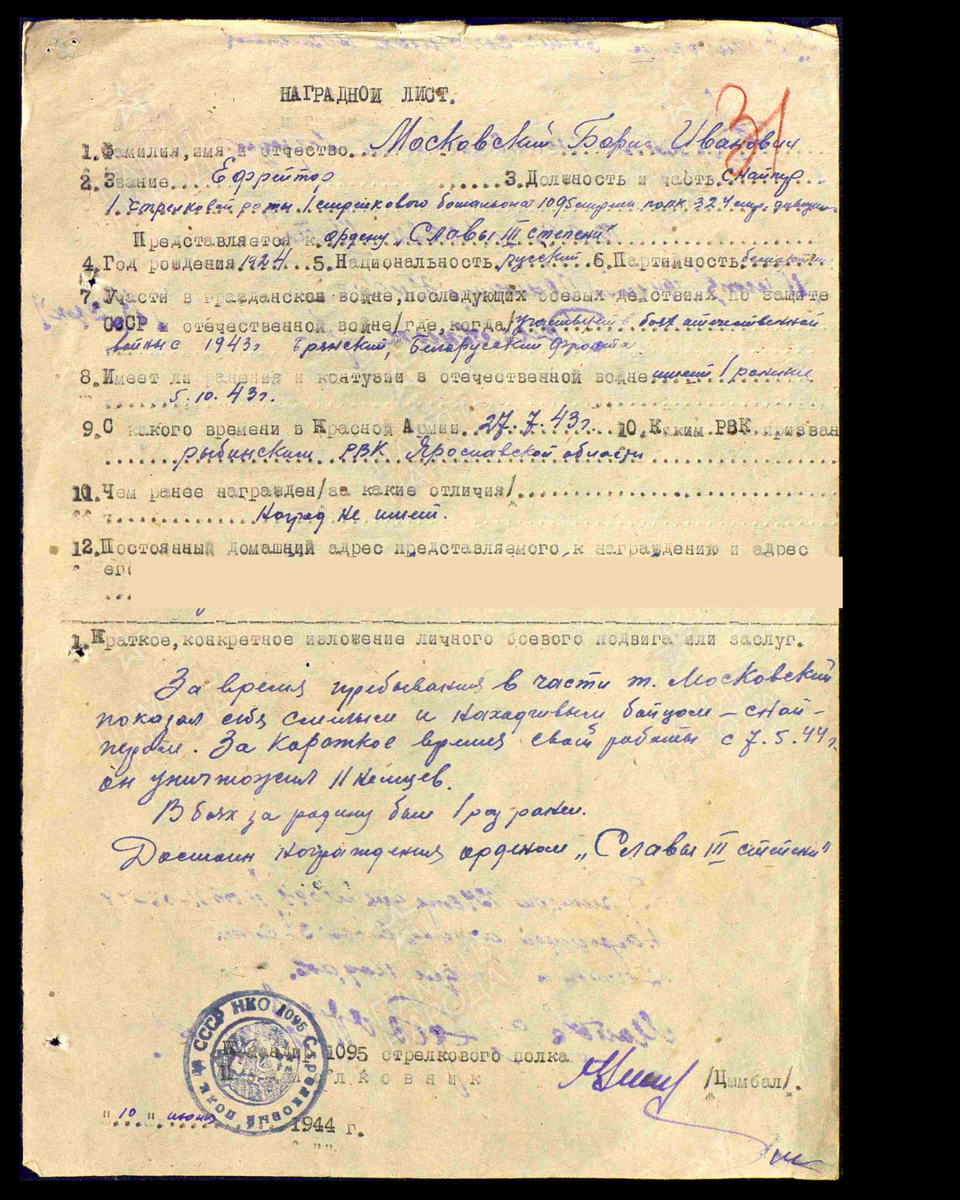 31
НАГРАДНОЙ ЛИСТ.
1. Фамилия, имя и отчество Московский Борис Иванович
2. Звание Ефрейтор 3. Должность и часть Снайпер
1 стрелковой роты 1 стрелкового батальона 1095 стрелк. полк. 324 стр. дивизии
Представляется к ордену „Славы III степени"
4. Год рождения 1924 5. Национальность русский 6. Партийность
7. Участи в гражданской войне, последующих боевых действиях по защите
СССР и отечественной войне/где, когда/ Участвует в боях отечественной
войны с 1943г Брянский, Белорусский фронта
8. Имеет ли ранения и контузии в отечественной войне имеет 1 ранение
5.10.43г.
9. С какого времени в Красной Армии 27.7.43г. 10. Каким РВК призван
рыбинским РВК Ярославской области
11. Чем ранее награжден/за какие отличия/
Наград не имеет.
12. Постоянный домашний адрес представляемого к награждению и адрес
1. Краткое, конкретное изложение личного боевого подвига или заслуг.
За время пребывания в части т. Московский
показал себя смелым и находчивым бойцом – снай-
пером. За короткое время своей работы с 7.5.44г.
он уничтожил 11 немцев.
В боях за родину был 1 раз ранен.
Достоин награждения орденом „Славы III степени"
СССР НКО 1095 Стрелковый полк
Командир 1095 стрелкового полка
/Цымбал/.
"10" июня 1944 г.